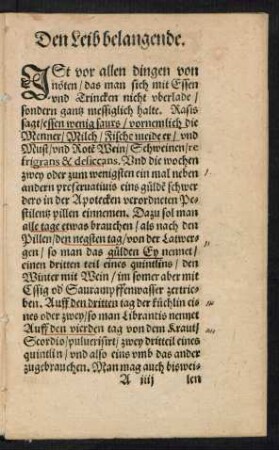 Den Leib belangende.
ISt vor allen dingen von
nöten / das man sich mit Essen
vnd Trincken nicht vberlade /
sondern gantz messiglich halte. Rasis
sagt / essen wenig saurs / vornemlich die
Menner / Milch / Fische meide er / vnd
Must / vnd Rotē Wein / Schweinen / re
frigrans & deliccans. Vnd die wochen
zwey oder zum wenigsten ein mal neben
andern preseruatiuis eins güldē schwer
ders in der Apotecken verordneten Pe-
stilentz pillen einnemen. Dazu sol man
alle tage etwas brauchen / als nach den
Pillen / den negsten tag / von der Latwer-
gen / so man das gülden Ey nennet /
einen dritten teil eines quintlins / den
Winter mit Wein / im somer aber mit
Essig od Saurampffenwasser zertrie-
ben. Auff den dritten tag der küchlin ei-
nes oder zwey / so man Librantis nennet
Auff den vierden tag von dem Kraut /
Scordio / puluerisirt / zwey dritteil eines
quintlin / vnd also eins vmb das ander
zugebrauchen. Man mag auch bisweis-
A iiij len